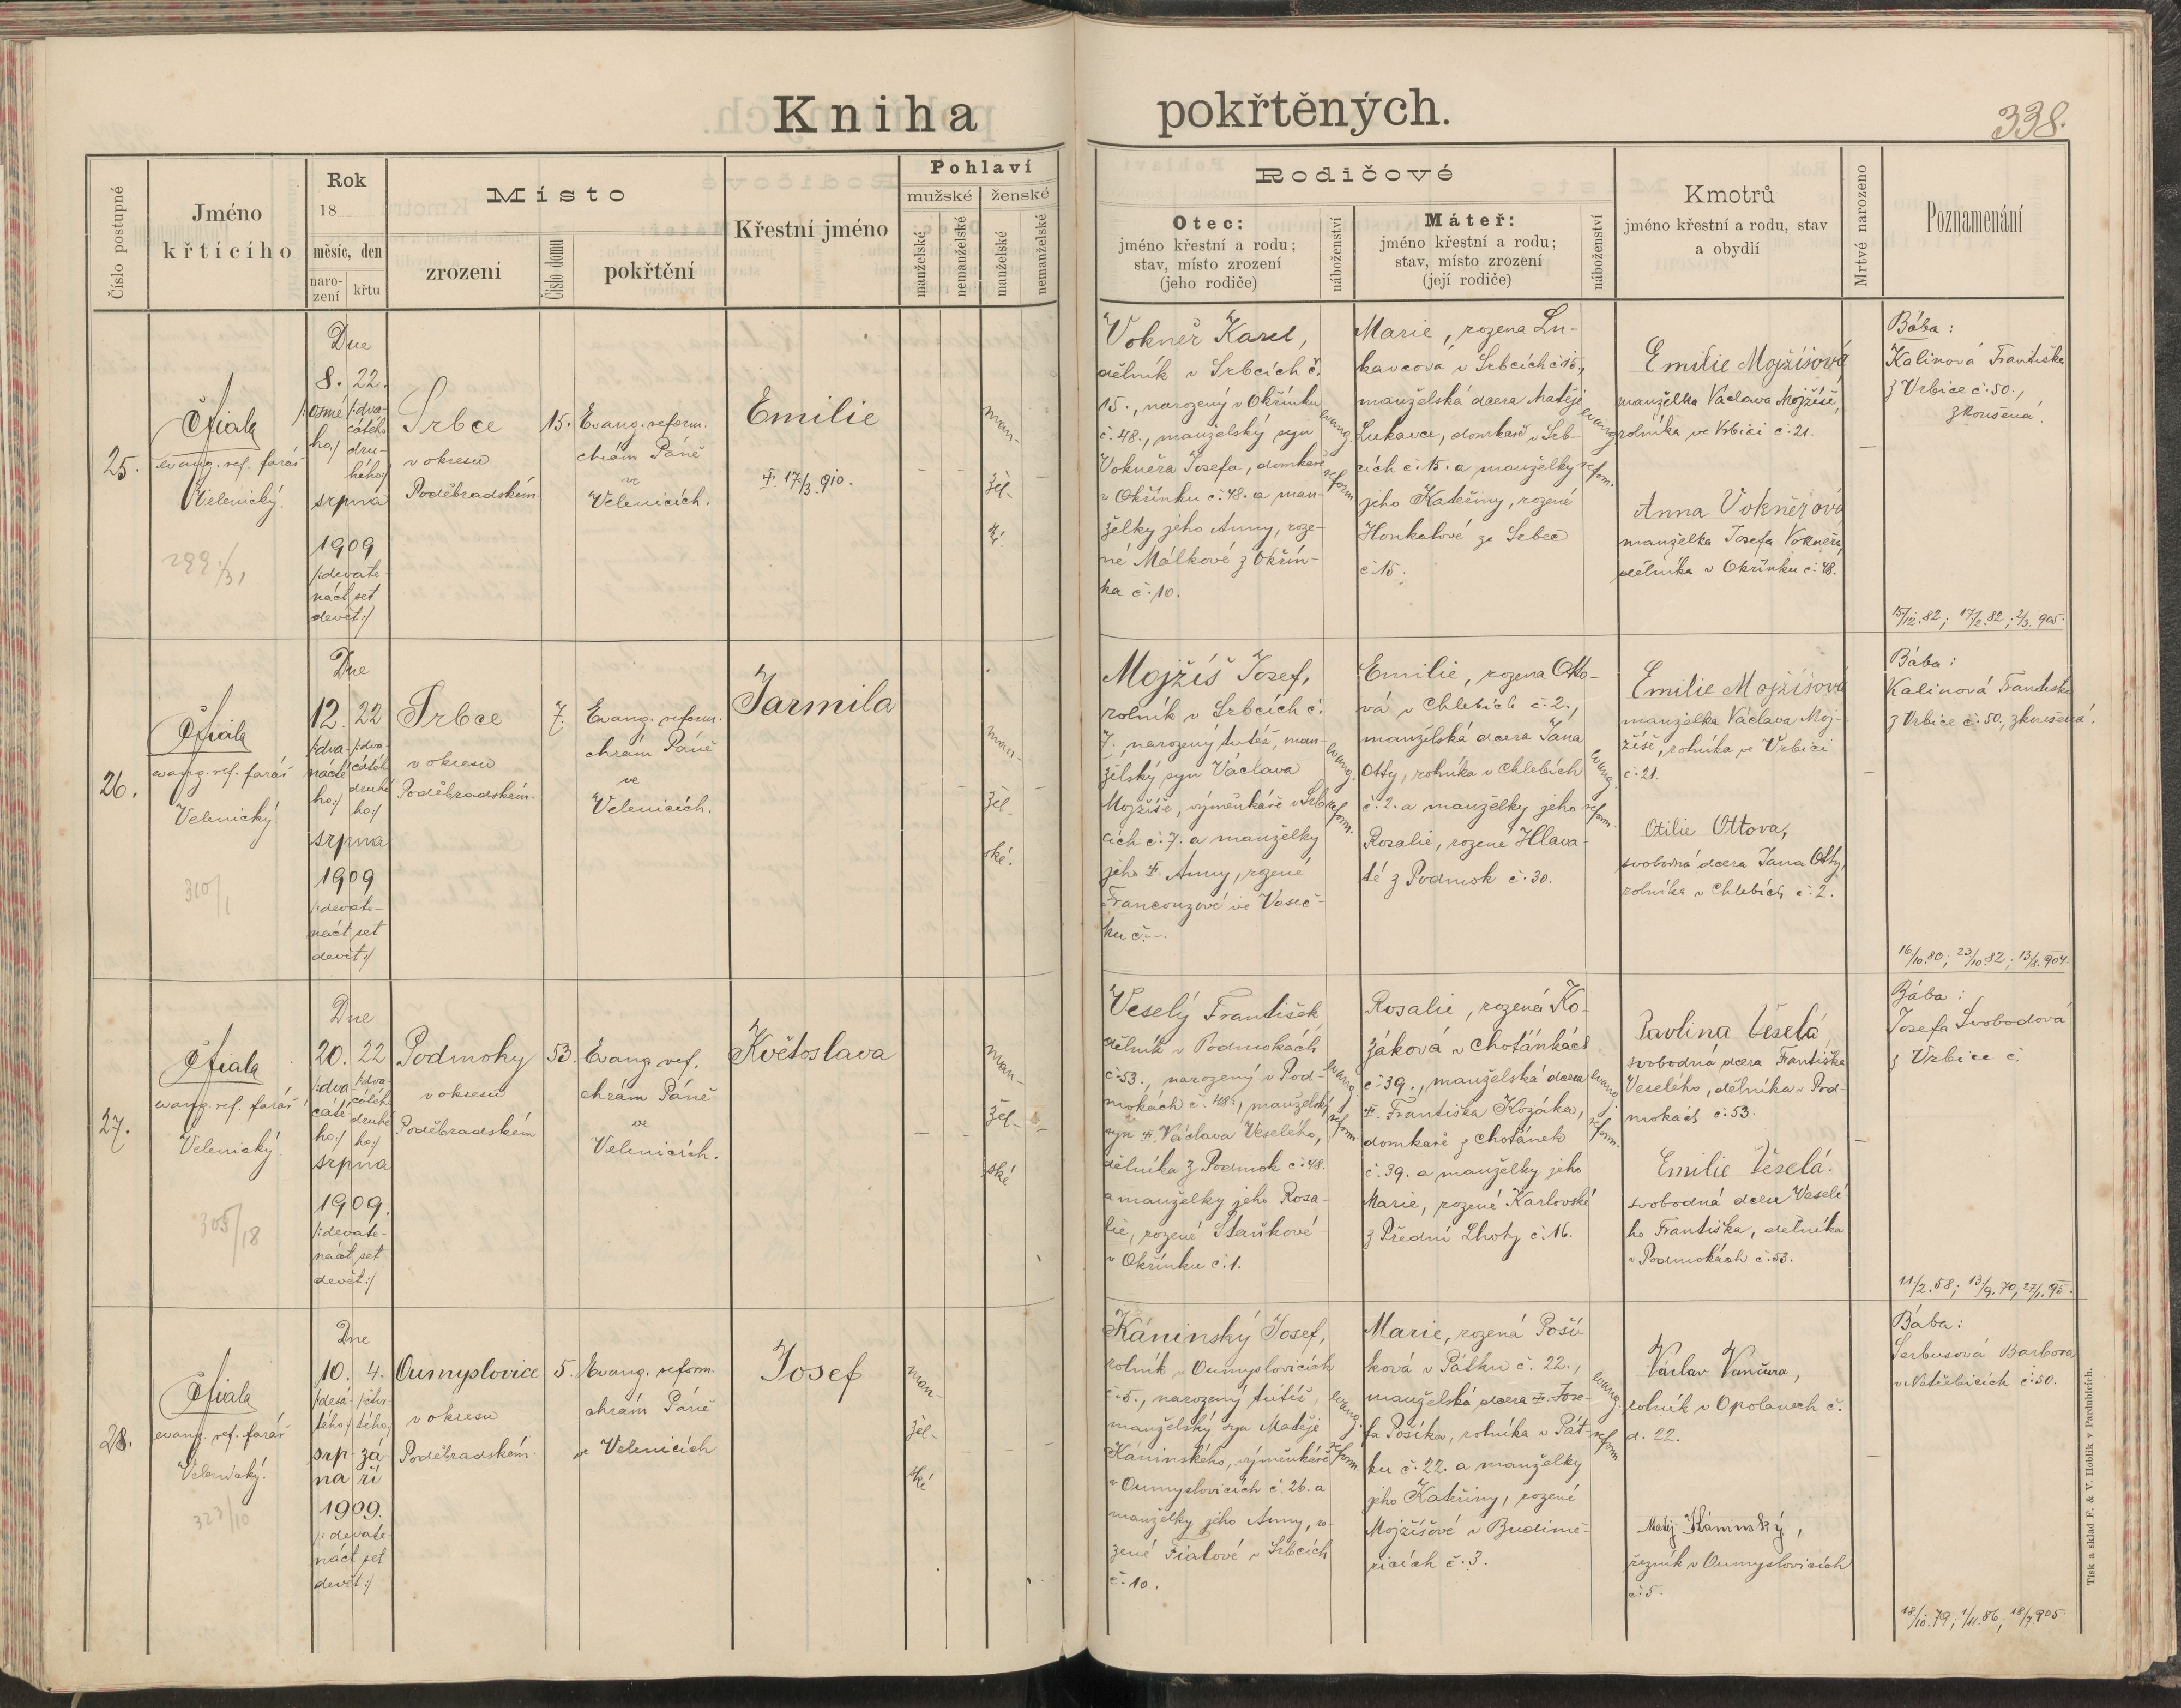 Kniha pokřtěných.
338.
Číslo postupné
Jméno
křtícího
Rok
18
měsíc, den
naro-
zení
křtu
Místo
zrození
Číslo domu
pokřtění
Křestní jméno
Pohlaví
mužské
ženské
manželské
nemanželské
manželské
nemanželské
Rodičové
Otec:
jméno křestní a rodu;
stav, místo zrození
(jeho rodiče)
náboženství
Máteř:
jméno křestní a rodu;
stav, místo zrození
(její rodiče)
náboženství
Kmotrů
jméno křestní a rodu, stav
a obydlí
Mrtvě narozeno
Poznamenání
25.
evang. ref. farář
Velenický.
299/31
Dne
8. 22.
/:osmé-
ho:/
/:dva-
cátého
dru-
hého:/
srpna
1909
/:devate-
náct set
devět:/
Srbce
v okresu
Poděbradském
15.
Evang. reform.
chrám Páně
ve
Velenicích.
Emilie
17/3. 910.
man-
žel-
ké.
Vokněr Karel,
dělník v Srbcích č.
15., narozený v Okřínku
č. 48., manželský syn
Vokněra Josefa, domkaře
v Okřínku č. 48. a man-
želky jeho Anny, roze-
né Málkové z Okřín-
ka č. 10.
evang.
reform.
Marie, rozena Lu-
kavcová v Srbcích č. 15.,
manželská dcera Matěje
Lukavce, domkaře v Srb-
cích č. 15. a manželky
jeho Kateřiny, rozené
Honkalové ze Srbec
č. 15.
evang.
reform.
Emilie Mojžíšová
manželka Václava Mojžíše,
rolníka ve Vrbici č. 21.
Anna Vokněrová
manželka Josefa Vokněra,
dělníka v Okřínku č. 48.
Bába:
Kalinová Františka
z Vrbice č. 50.,
zkoušená.
15/12. 82; 17/2. 82; 2/3. 905.
26.
evang. ref. farář
Velenický.
310/1
Dne
12. 22
/:dva-
nácté-
ho:/
/:dva-
cátéh
druhé
ho:/
srpna
1909
/:devate-
náct set
devět:/
Srbce
v okresu
Poděbradském.
7.
Evang. reform.
chrám Páně
ve
Velenicích.
Jarmila
man-
žel-
ské.
Mojžíš Josef,
rolník v Srbcích č.
7., narozený tutéž, man-
želský syn Václava
Mojžíše, výměnkáře v Srb-
cích č. 7. a manželky
jeho Anny, rozené
Francouzové ve Voseč-
ku č. -.
evang.
reform.
Emilie, rozena Otto-
vá v Chlebích č. 2.,
manželská dcera Jana
Otty, rolníka v Chlebích
č. 2. a manželky jeho
Rosalie, rozené Hlava-
té z Podmok č. 30.
evang.
reform.
Emilie Mojžíšová
manželka Václava Moj-
žíše, rolníka ve Vrbici
č. 21.
Otilie Ottova,
svobodná dcera Jana Otty,
rolníka v Chlebích č. 2.
Bába:
Kalinová Františka
z Vrbice č. 50., zkoušená.
16/10. 80; 23/10. 82; 13/8. 904.
27.
evang. ref. farář
Velenický.
305/18
Dne
20. 22
/:dva-
cáté-
ho:/
/:dva-
cátéh
druhé
ho:/
srpna
1909.
/:devate-
náct set
devět:/
Podmoky
v okresu
Poděbradském
53.
Evang. ref.
chrám Páně
ve
Velenicích.
Květoslava
man-
žel-
ské
Veselý František
dělník v Podmokách
č. 53., narozený v Pod-
mokách č. 48., manželský
syn Václava Veselého,
dělníka z Podmok č. 48.
a manželky jeho Rosa-
lie, rozené Staňkové
v Okřínku č. 1.
evang.
reform.
Rosalie, rozená Ko-
záková v Chotánkách
č. 39., manželská dcera
Františka Kozáka,
domkaře z Chotánek
č. 39. a manželky jeho
Marie, rozené Karlovské
z Přední Lhoty č. 16.
evang.
reform.
Pavlina Veselá,
svobodná dcera Františka
Veselého, dělníka v Pod-
mokách č. 53.
Emilie Veselá.
svobodná dcera Veselé-
ho Františka, dělníka
v Podmokách č. 53.
Bába:
Josefa Svobodová
z Vrbice č.
11/2. 58; 13/9. 70; 27/1. 95.
28.
evang. ref. farář
Velenický.
323/10
Dne
10. 4.
/:desá-
tého:/
/:čtvr-
tého:/
srp-
na
zá-
ří
1909.
/:devate-
náct set
devět:/
Oumyslovice
v okresu
Poděbradském.
5.
Evang. reform.
chrám Páně
ve Velenicích
Josef
man-
žel-
ské
Káninský Josef,
rolník v Oumyslovicích
č. 5., narozený tutéž,
manželský syn Matěje
Káninského, výměnkáře
v Oumyslovicích č. 26. a
manželky jeho Anny, ro-
zené Fialové v Srbcích
č. 10.
evang.
reform.
Marie, rozená Poší-
ková v Pátku č. 22.,
manželská dcera Jose-
fa Pošíka, rolníka v Pát-
ku č. 22. a manželky
jeho Kateřiny, rozené
Mojžíšové v Budimě-
řicích č. 3.
evang.
reform
Václav Vančura,
rolník v Opolanech č.
d. 22.
Matěj Káninský,
řezník v Oumyslovicích
č. 5.
Bába:
Serbusová Barbora
v Netřebicích č. 50.
18/10. 79; 1/11. 86; 18/7. 905.
Tisk a sklad F. & V. Hoblík v Pardubicích.